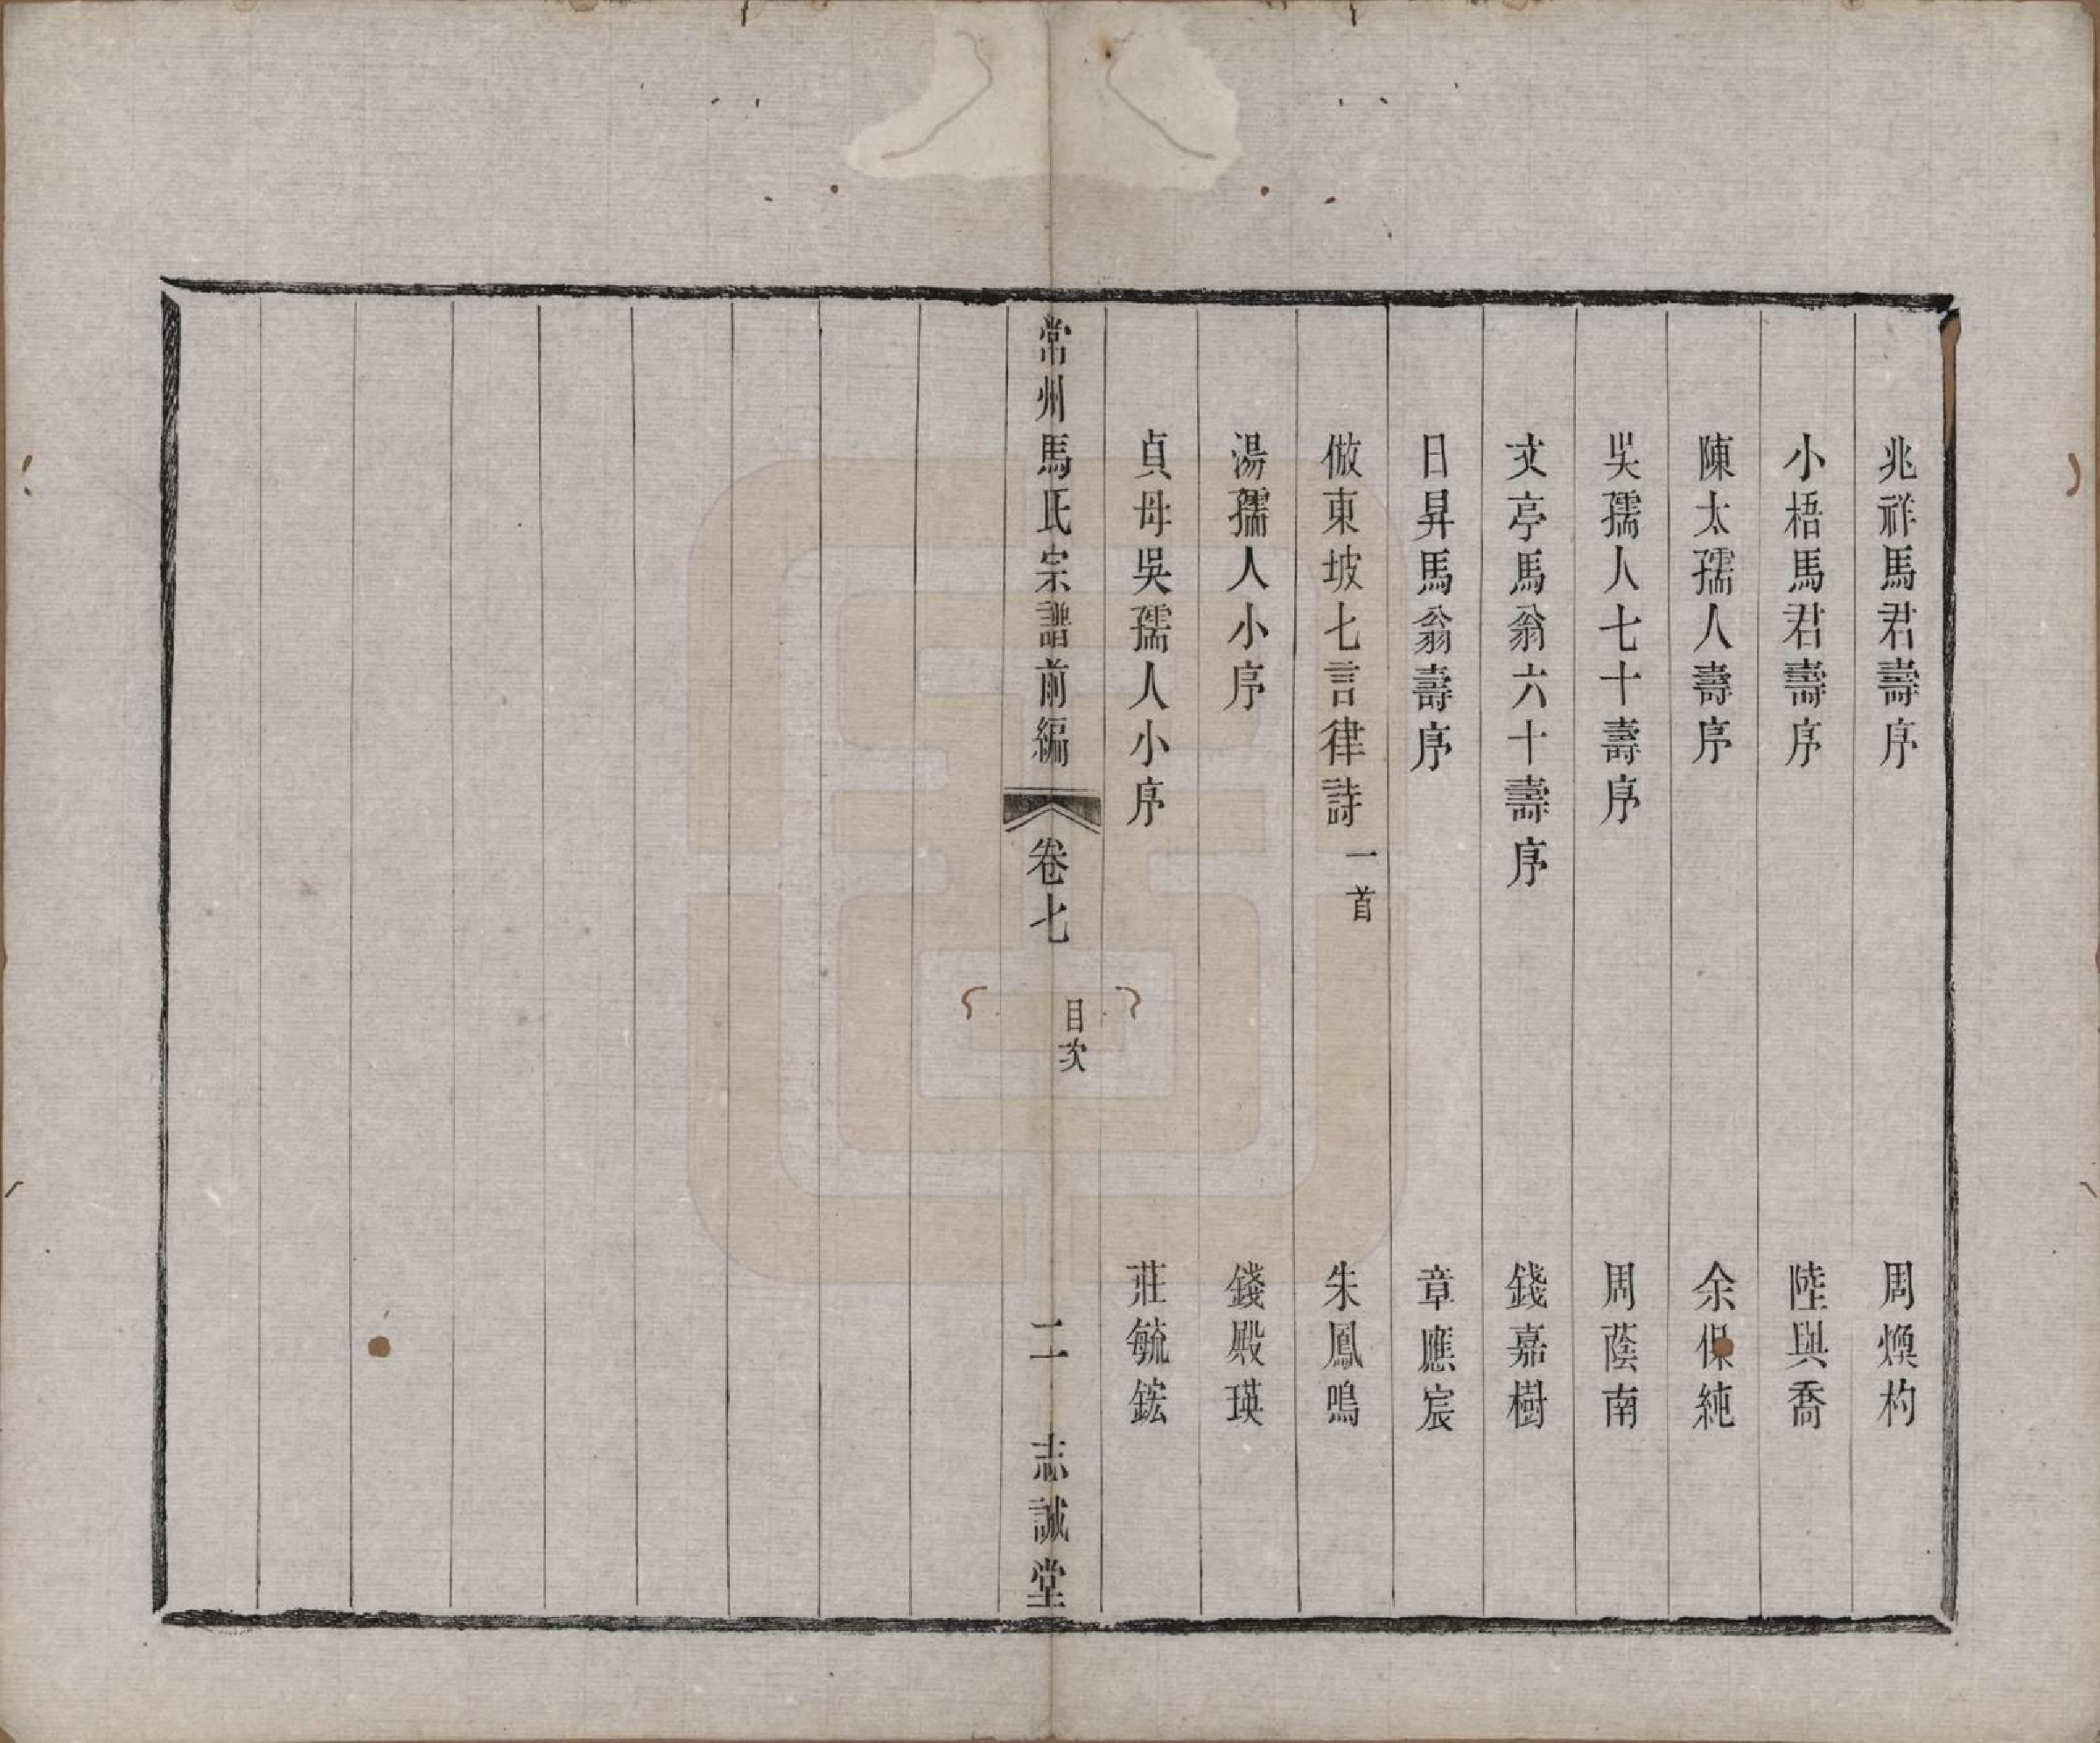 兆祥馬君壽序 周煥杓
小梧馬君壽序 陸與喬
陳太孺人壽序 余保純
吳孺人七十壽序 周蔭南
文亭馬翁六十壽序 錢嘉樹
日昇馬翁壽序 章應宸
倣東坡七言律詩 一首 朱鳳鳴
湯孺人小序 錢殿瑛
貞母吳孺人小序 莊毓鋐
常州馬氏宗譜前編 卷七 目次 二 志誠堂